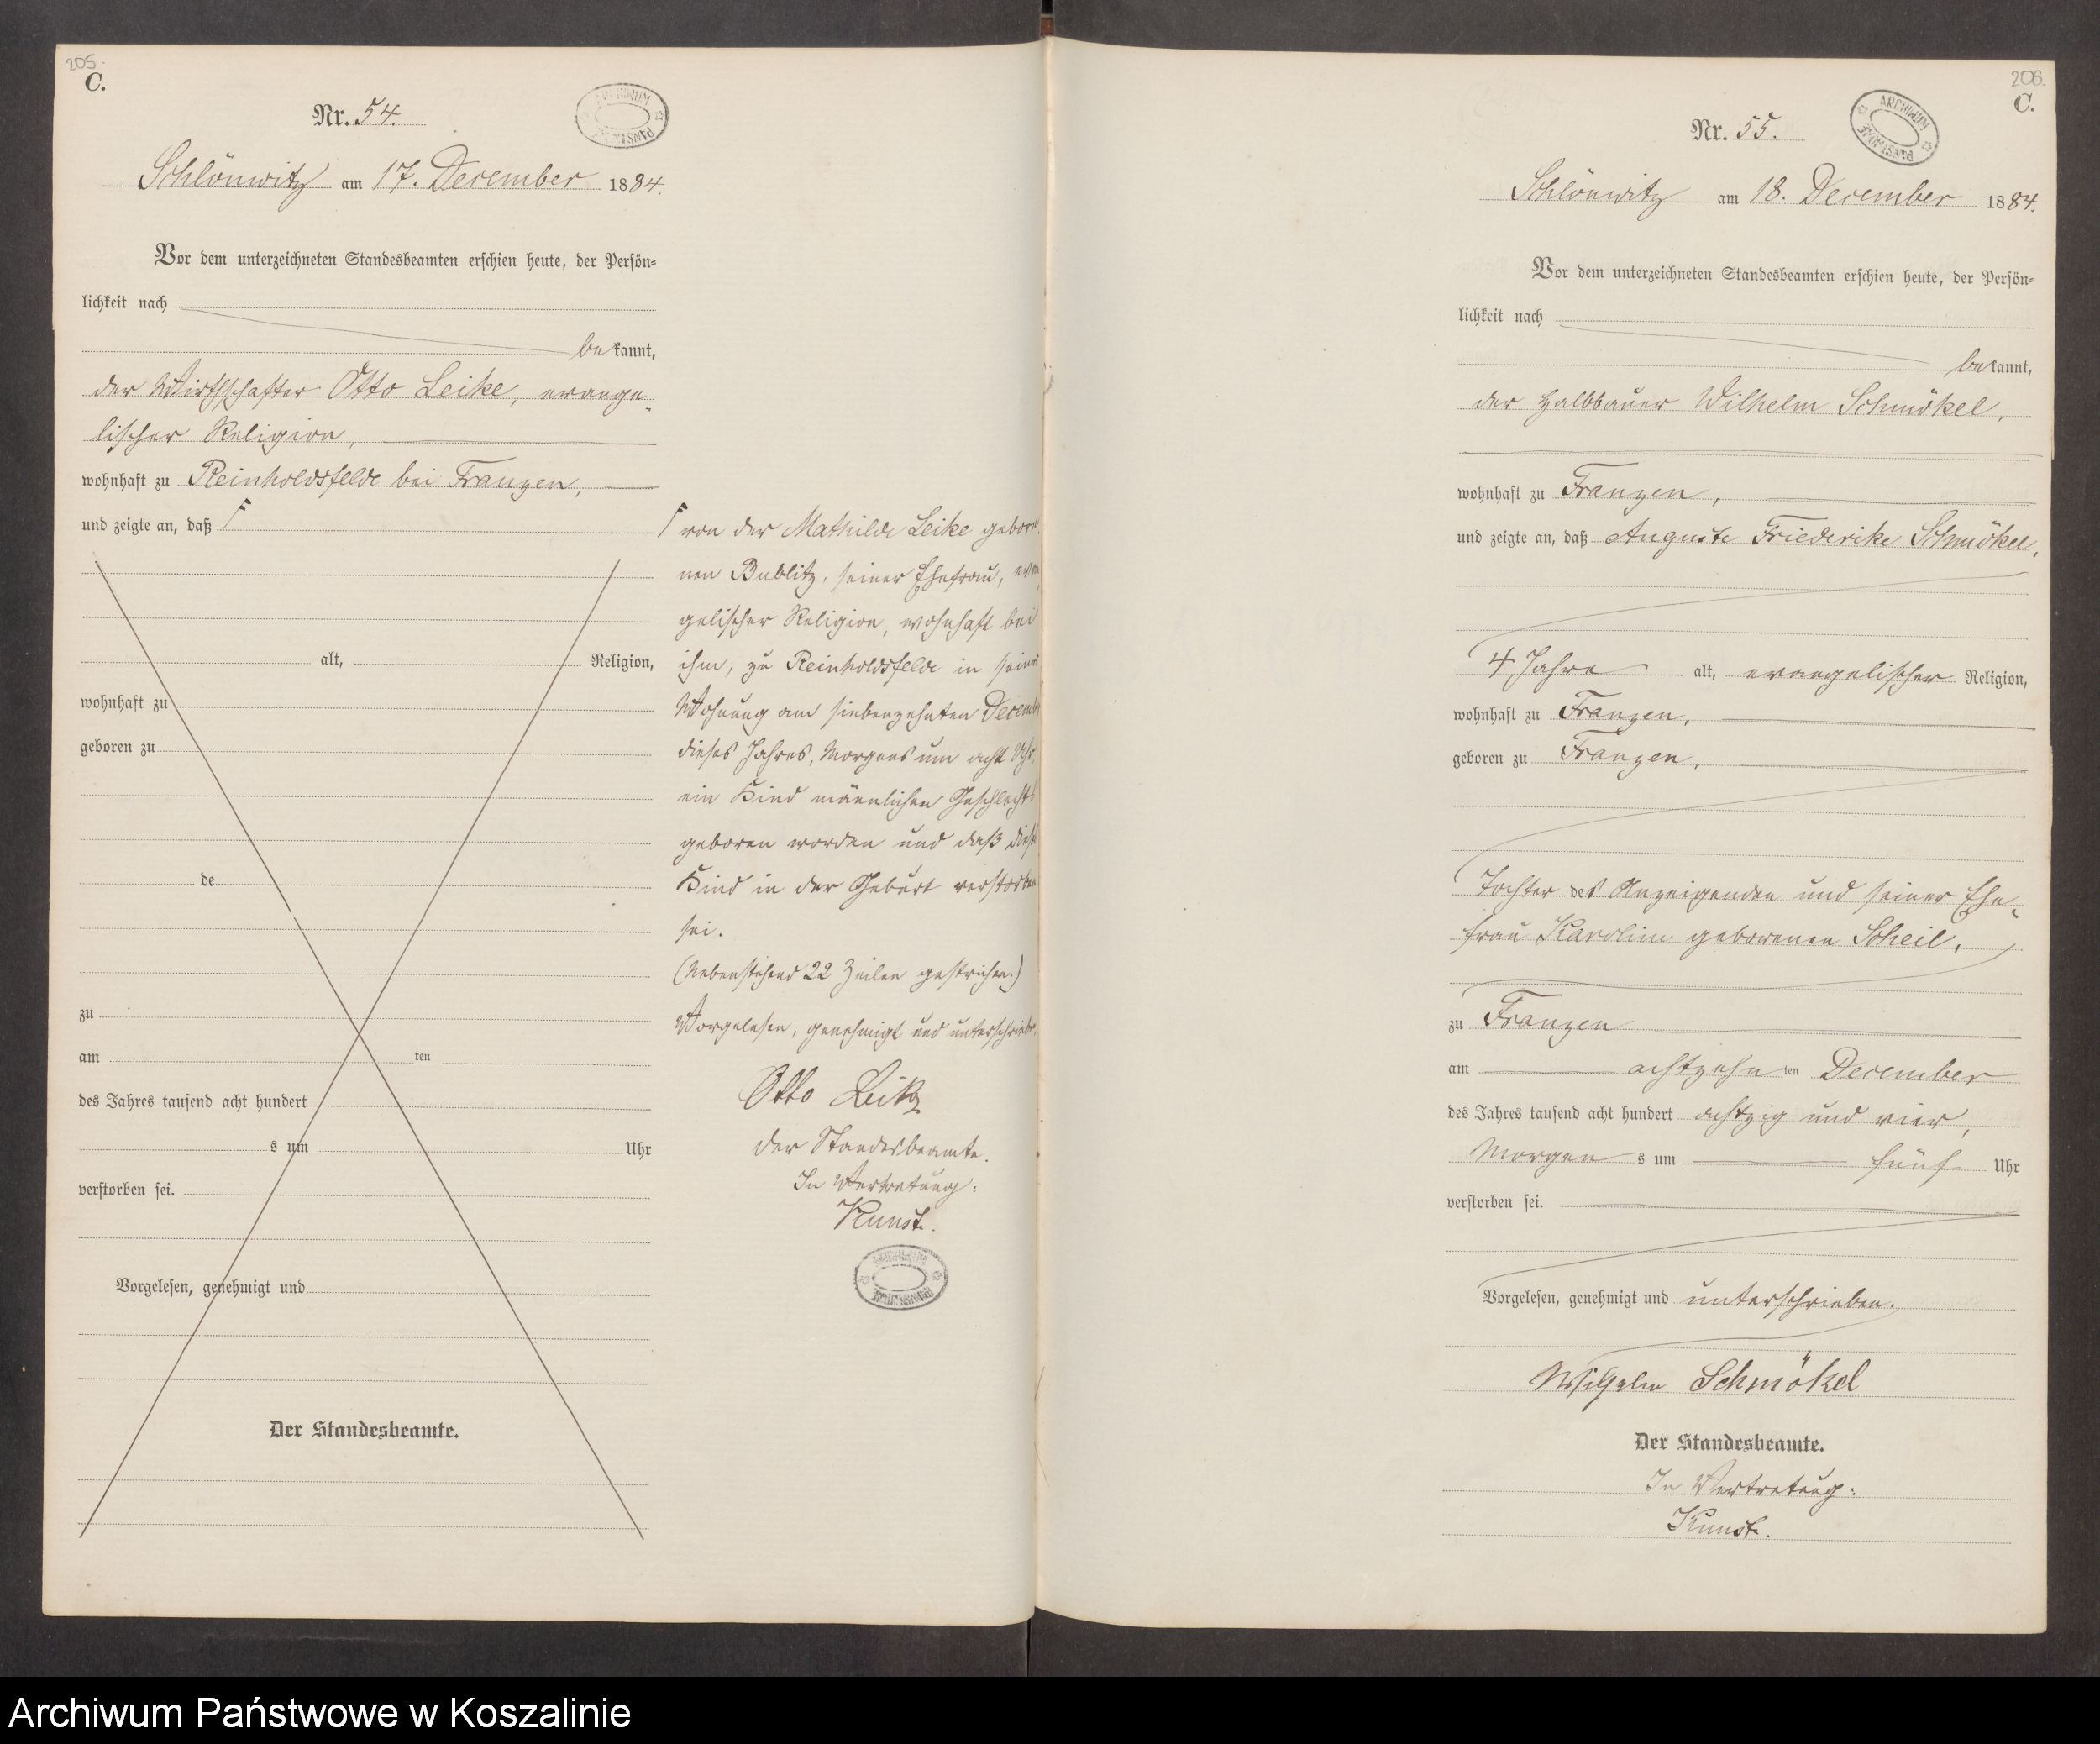 205.
C.
Nr. 54.
ARCHIWUM PAŃSTW
Schlönwitz am 17. December 1884.
Vor dem unterzeichneten Standesbeamten erschien heute, der Persön-
lichkeit nach
bekannt,
der Wirthschafter Otto Leike, evange-
lischer Religion,
wohnhaft zu Reinholdsfelde bei Franzen,
und zeigte an, daß
alt, Religion,
wohnhaft zu
geboren zu
de
zu
am ten
des Jahres tausend acht hundert
s um Uhr
verstorben sei.
Vorgelesen, genehmigt und
Der Standesbeamte.
von der Mathilde Leike gebor
nen Bublitz, seiner Ehefrau, evan
gelischer Religion, wohnhaft bei
ihm, zu Reinholdsfelde in seiner
Wohnung am siebenzehnten Decemb
dieses Jahres, Morgens um acht Uhr,
ein Kind männlichen Geschlechts
geboren worden und daß dieses
Kind in der Geburt verstorben
sei.
(Nebenstehend 22 Zeilen gestrichen.)
Vorgelesen, genehmigt und unterschrieb
Otto Leike
Der Standesbeamte.
In Vertretung:
Kunst.
ARCHIWUM
206.
C.
Nr. 55.
ARCHIWUM PAŃSTWOWE
Schlönwitz am 18. December 1884.
Vor dem unterzeichneten Standesbeamten erschien heute, der Persön-
lichkeit nach
bekannt,
der Halbbauer Wilhelm Schmökel,
wohnhaft zu Franzen,
und zeigte an, daß Auguste Friederike Schmökel,
4 Jahre alt, evangelischer Religion,
wohnhaft zu Franzen,
geboren zu Franzen,
Tochter des Anzeigenden und seiner Ehe-
frau Karoline geborenen Scheil,
zu Franzen
am achtzehnten December
des Jahres tausend acht hundert achtzig und vier,
Morgens um fünf Uhr
verstorben sei.
Vorgelesen, genehmigt und unterschrieben.
Wilhelm Schmökel
Der Standesbeamte.
In Vertretung:
Kunst.
Archiwum Państwowe w Koszalinie